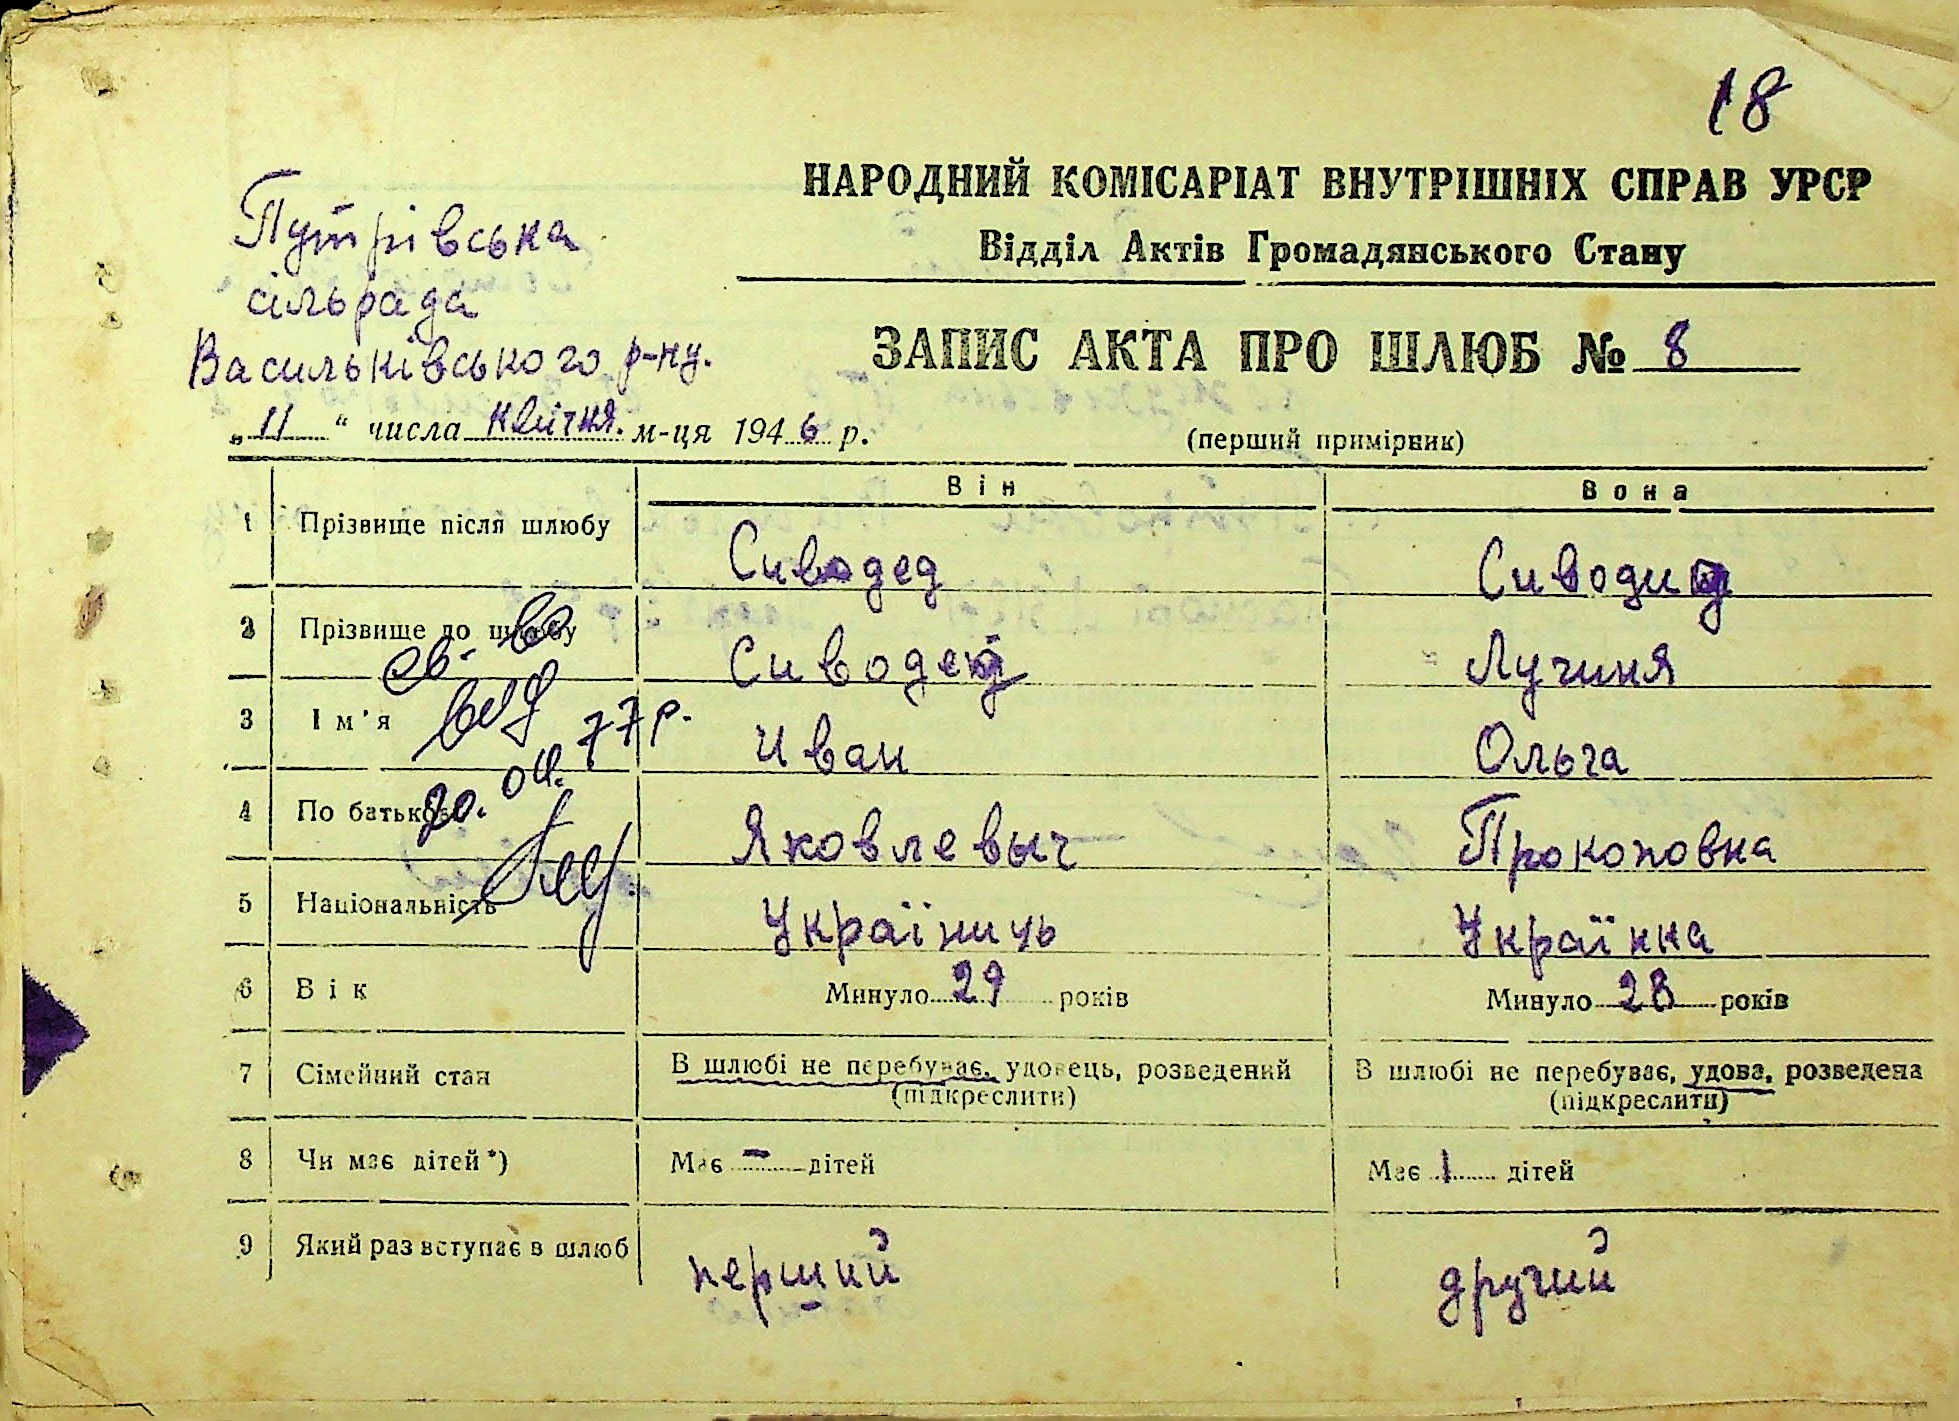 18
НАРОДНИЙ КОМІСАРІАТ ВНУТРІШНІХ СПРАВ УРСР
Відділ Актів Громадянського Стану
Путрівська
сільрада
Васильківського р-ну.
ЗАПИС АКТА ПРО ШЛЮБ № 8
„11“ числа квітня. м-ця 1946 р.
(перший примірник)
Він Вона
1 Прізвище після шлюбу Сиводед Сиводид
2 Прізвище до шлюбу Сиводед Лучиня
св. во
вид
3 Ім'я Иван Ольга
20. 04. 77 р.
4 По батькові Яковлевыч Прокоповна
5 Національність Україниць Українка
6 Вік Минуло 29 років Минуло 28 років
7 Сімейний стан В шлюбі не перебуває, удовець, розведений В шлюбі не перебуває, удова, розведена
(підкреслити) (підкреслити)
8 Чи має дітей*) Має – дітей Має 1 дітей
9 Який раз вступає в шлюб перший другий